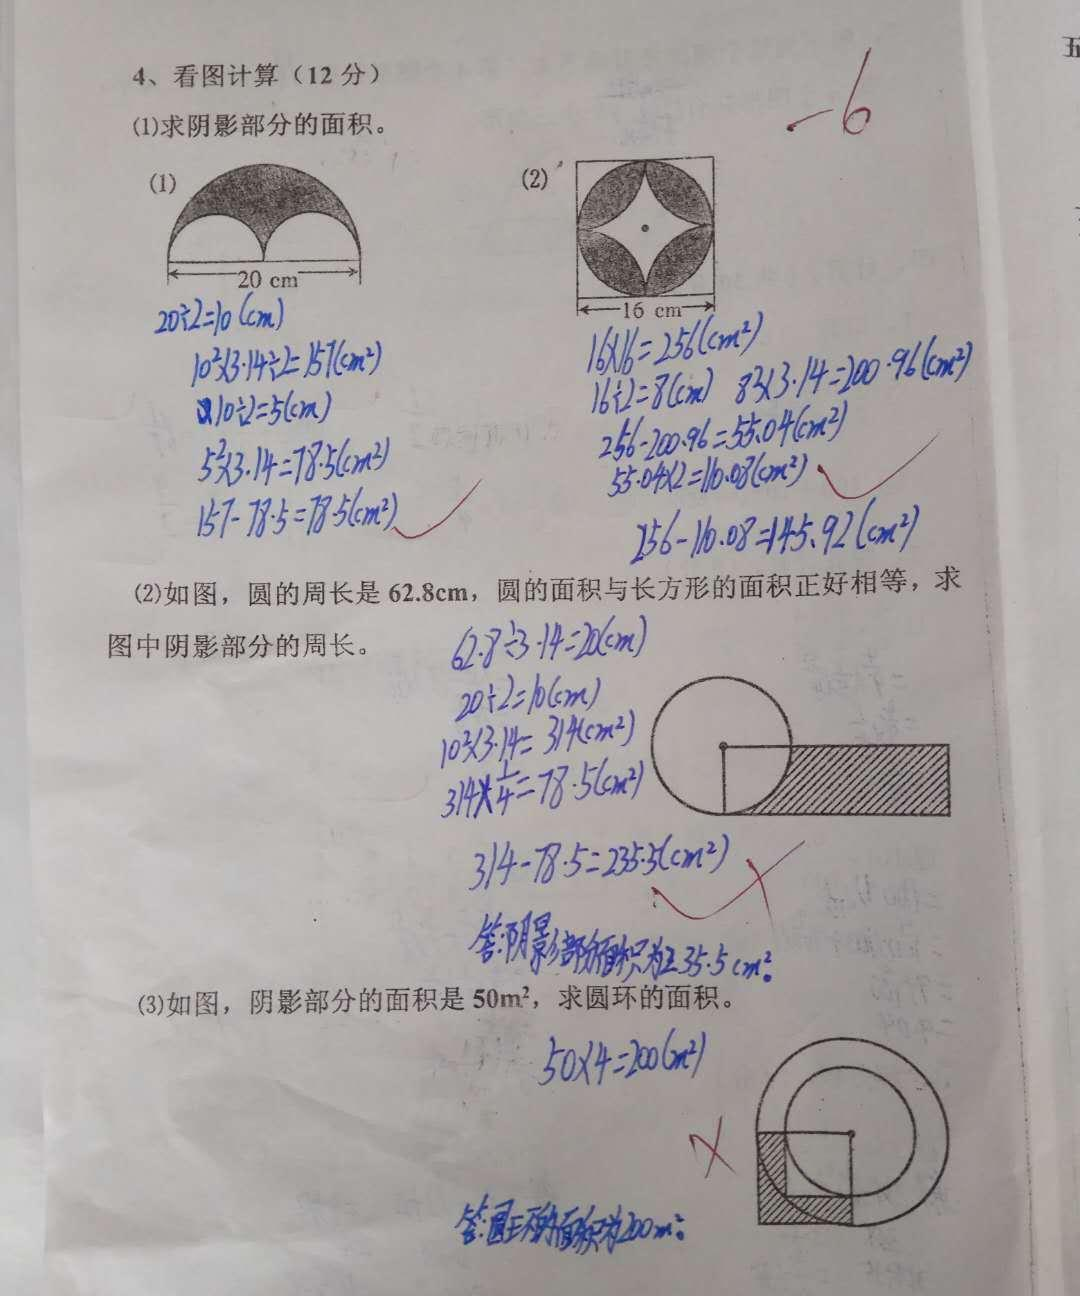 4、看图计算（12 分）
-6
⑴求阴影部分的面积。
(1)
(2)
20 cm
16 cm
20÷2=10(cm)
10²×3.14÷2=157(cm²)
10÷2=5(cm)
5²×3.14=78.5(cm²)
157-78.5=78.5(cm²)
16×16=256(cm²)
16÷2=8(cm) 8²×3.14=200.96(cm²)
256-200.96=55.04(cm²)
55.04×2=110.08(cm²)
256-110.08=145.92(cm²)
⑵如图，圆的周长是 62.8cm，圆的面积与长方形的面积正好相等，求
图中阴影部分的周长。
62.8÷3.14=20(cm)
20÷2=10(cm)
10²×3.14=314(cm²)
314×1/4=78.5(cm²)
314-78.5=235.5(cm²)
答:阴影部分面积为235.5cm²。
⑶如图，阴影部分的面积是 50m²，求圆环的面积。
50×4=200(m²)
答:圆环的面积为200m²。
五